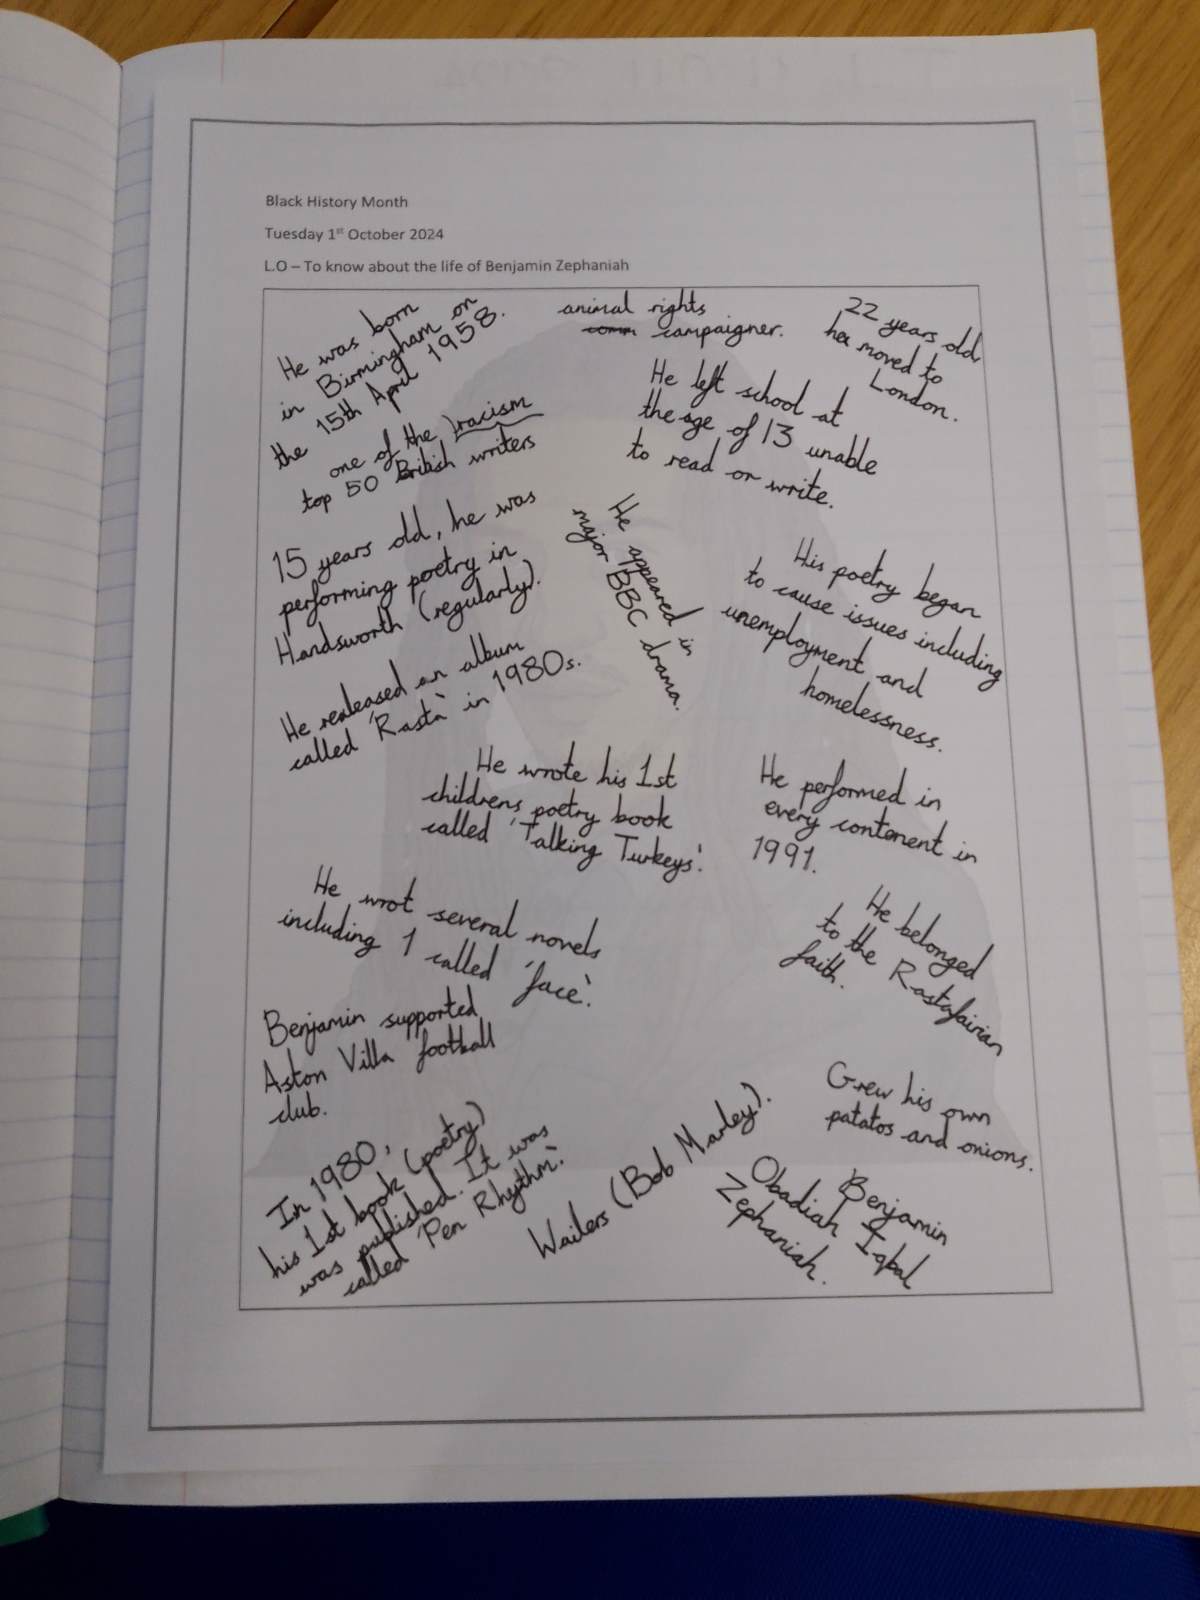 Black History Month
Tuesday 1st October 2024
L.O – To know about the life of Benjamin Zephaniah
He was born
in Birmingham on
the 15th April 1958.
animal rights
campaigner.
22 years old,
he moved to
London.
He left school at
the age of 13 unable
to read or write.
racism
one of the
top 50 British writers
15 years old, he was
performing poetry in
Handsworth (regularly).
He appeared in
major BBC drama.
His poetry began
to cause issues including
unemployment and
homelessness.
He realeased an album
called 'Rasta' in 1980s.
He wrote his 1st
childrens poetry book
called 'Talking Turkeys'.
He performed in
every contenent in
1991.
He wrot several novels
including 1 called 'face'.
He belonged
to the Rastafairian
faith.
Benjamin supported
Aston Villa football
club.
Grew his own
patatos and onions.
In 1980,
his 1st book (poetry)
was published. It was
called 'Pen Rhythm'.
Wailers (Bob Marley).
Benjamin
Obadiah Iqbal
Zephaniah.